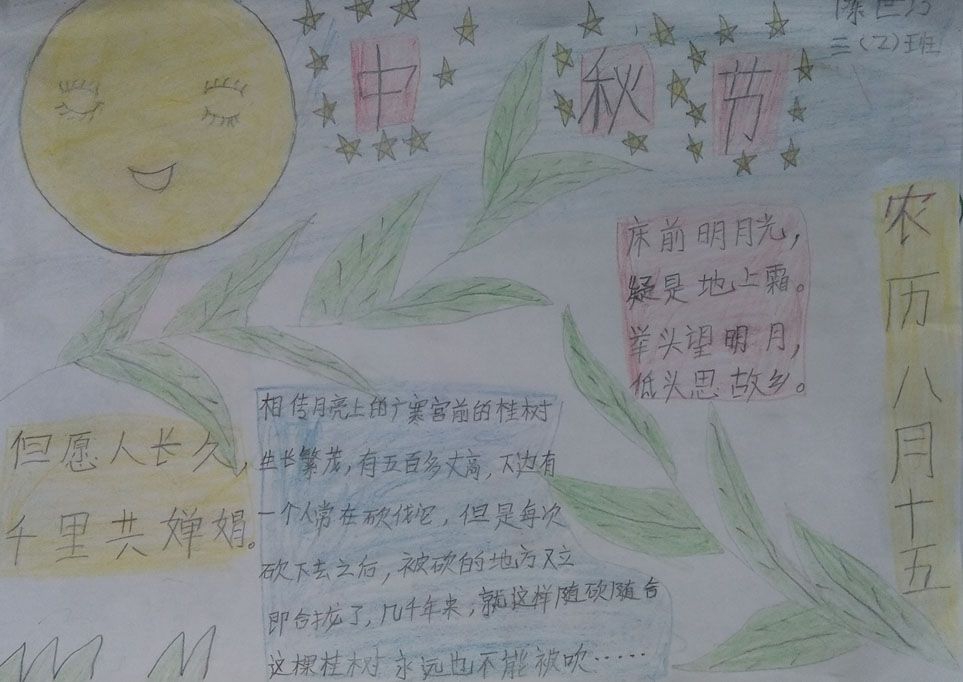 中秋节
三(2)班
农历八月十五
床前明月光，
疑是地上霜。
举头望明月，
低头思故乡。
但愿人长久，
千里共婵娟。
相传月亮上的广寒宫前的桂树
生长繁茂，有五百多丈高，下边有
一个人常在砍伐它，但是每次
砍下去之后，被砍的地方又立
即合拢了，几千年来，就这样随砍随合
这棵桂树永远也不能被吹……